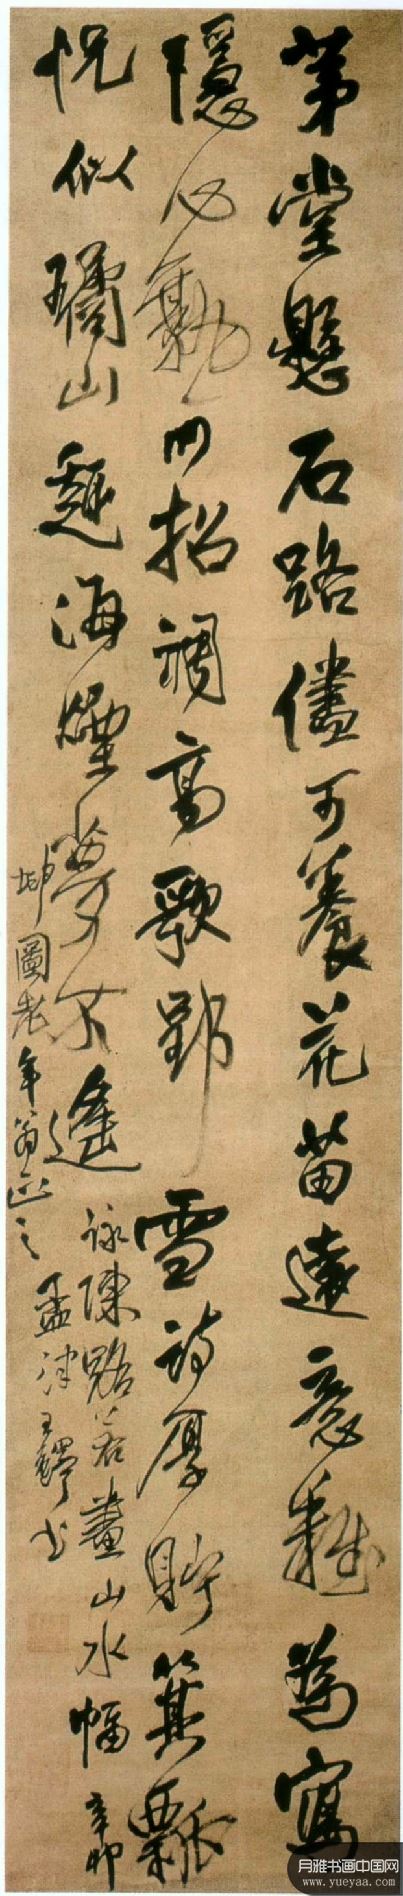 茅堂懸石路儘可養花苗遠意難為寫
隱心勤用招調高歌郢雪詩厚貯箕瓢
怳似璚山趣海煙夢不遙
詠陳路若畫山水幅 辛卯
坤圖老年翁正之 孟津王鐸書
月雅书画中国网
www.yueyaa.com